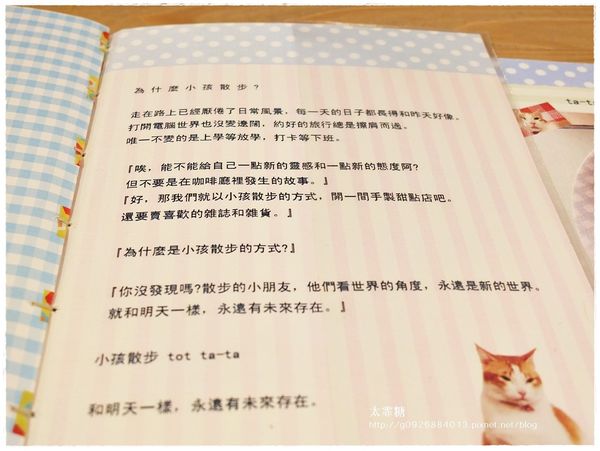 為什麼小孩散步?
走在路上已經厭倦了日常風景，每一天的日子都長得和昨天好像。
打開電腦世界也沒變遼闊，約好的旅行總是擦肩而過。
唯一不變的是上學等放學，打卡等下班。
『唉，能不能給自己一點新的靈感和一點新的態度阿?
但不要是在咖啡廳裡發生的故事。』
『好，那我們就以小孩散步的方式，開一間手製甜點店吧。
還要賣喜歡的雜誌和雜貨。』
『為什麼是小孩散步的方式?』
『你沒發現嗎?散步的小朋友，他們看世界的角度，永遠是新的世界。
就和明天一樣，永遠有未來存在。』
小孩散步 tot ta-ta
和明天一樣，永遠有未來存在。
ta-t
太霏糖
http://g0926884013.pixnet.net/blog